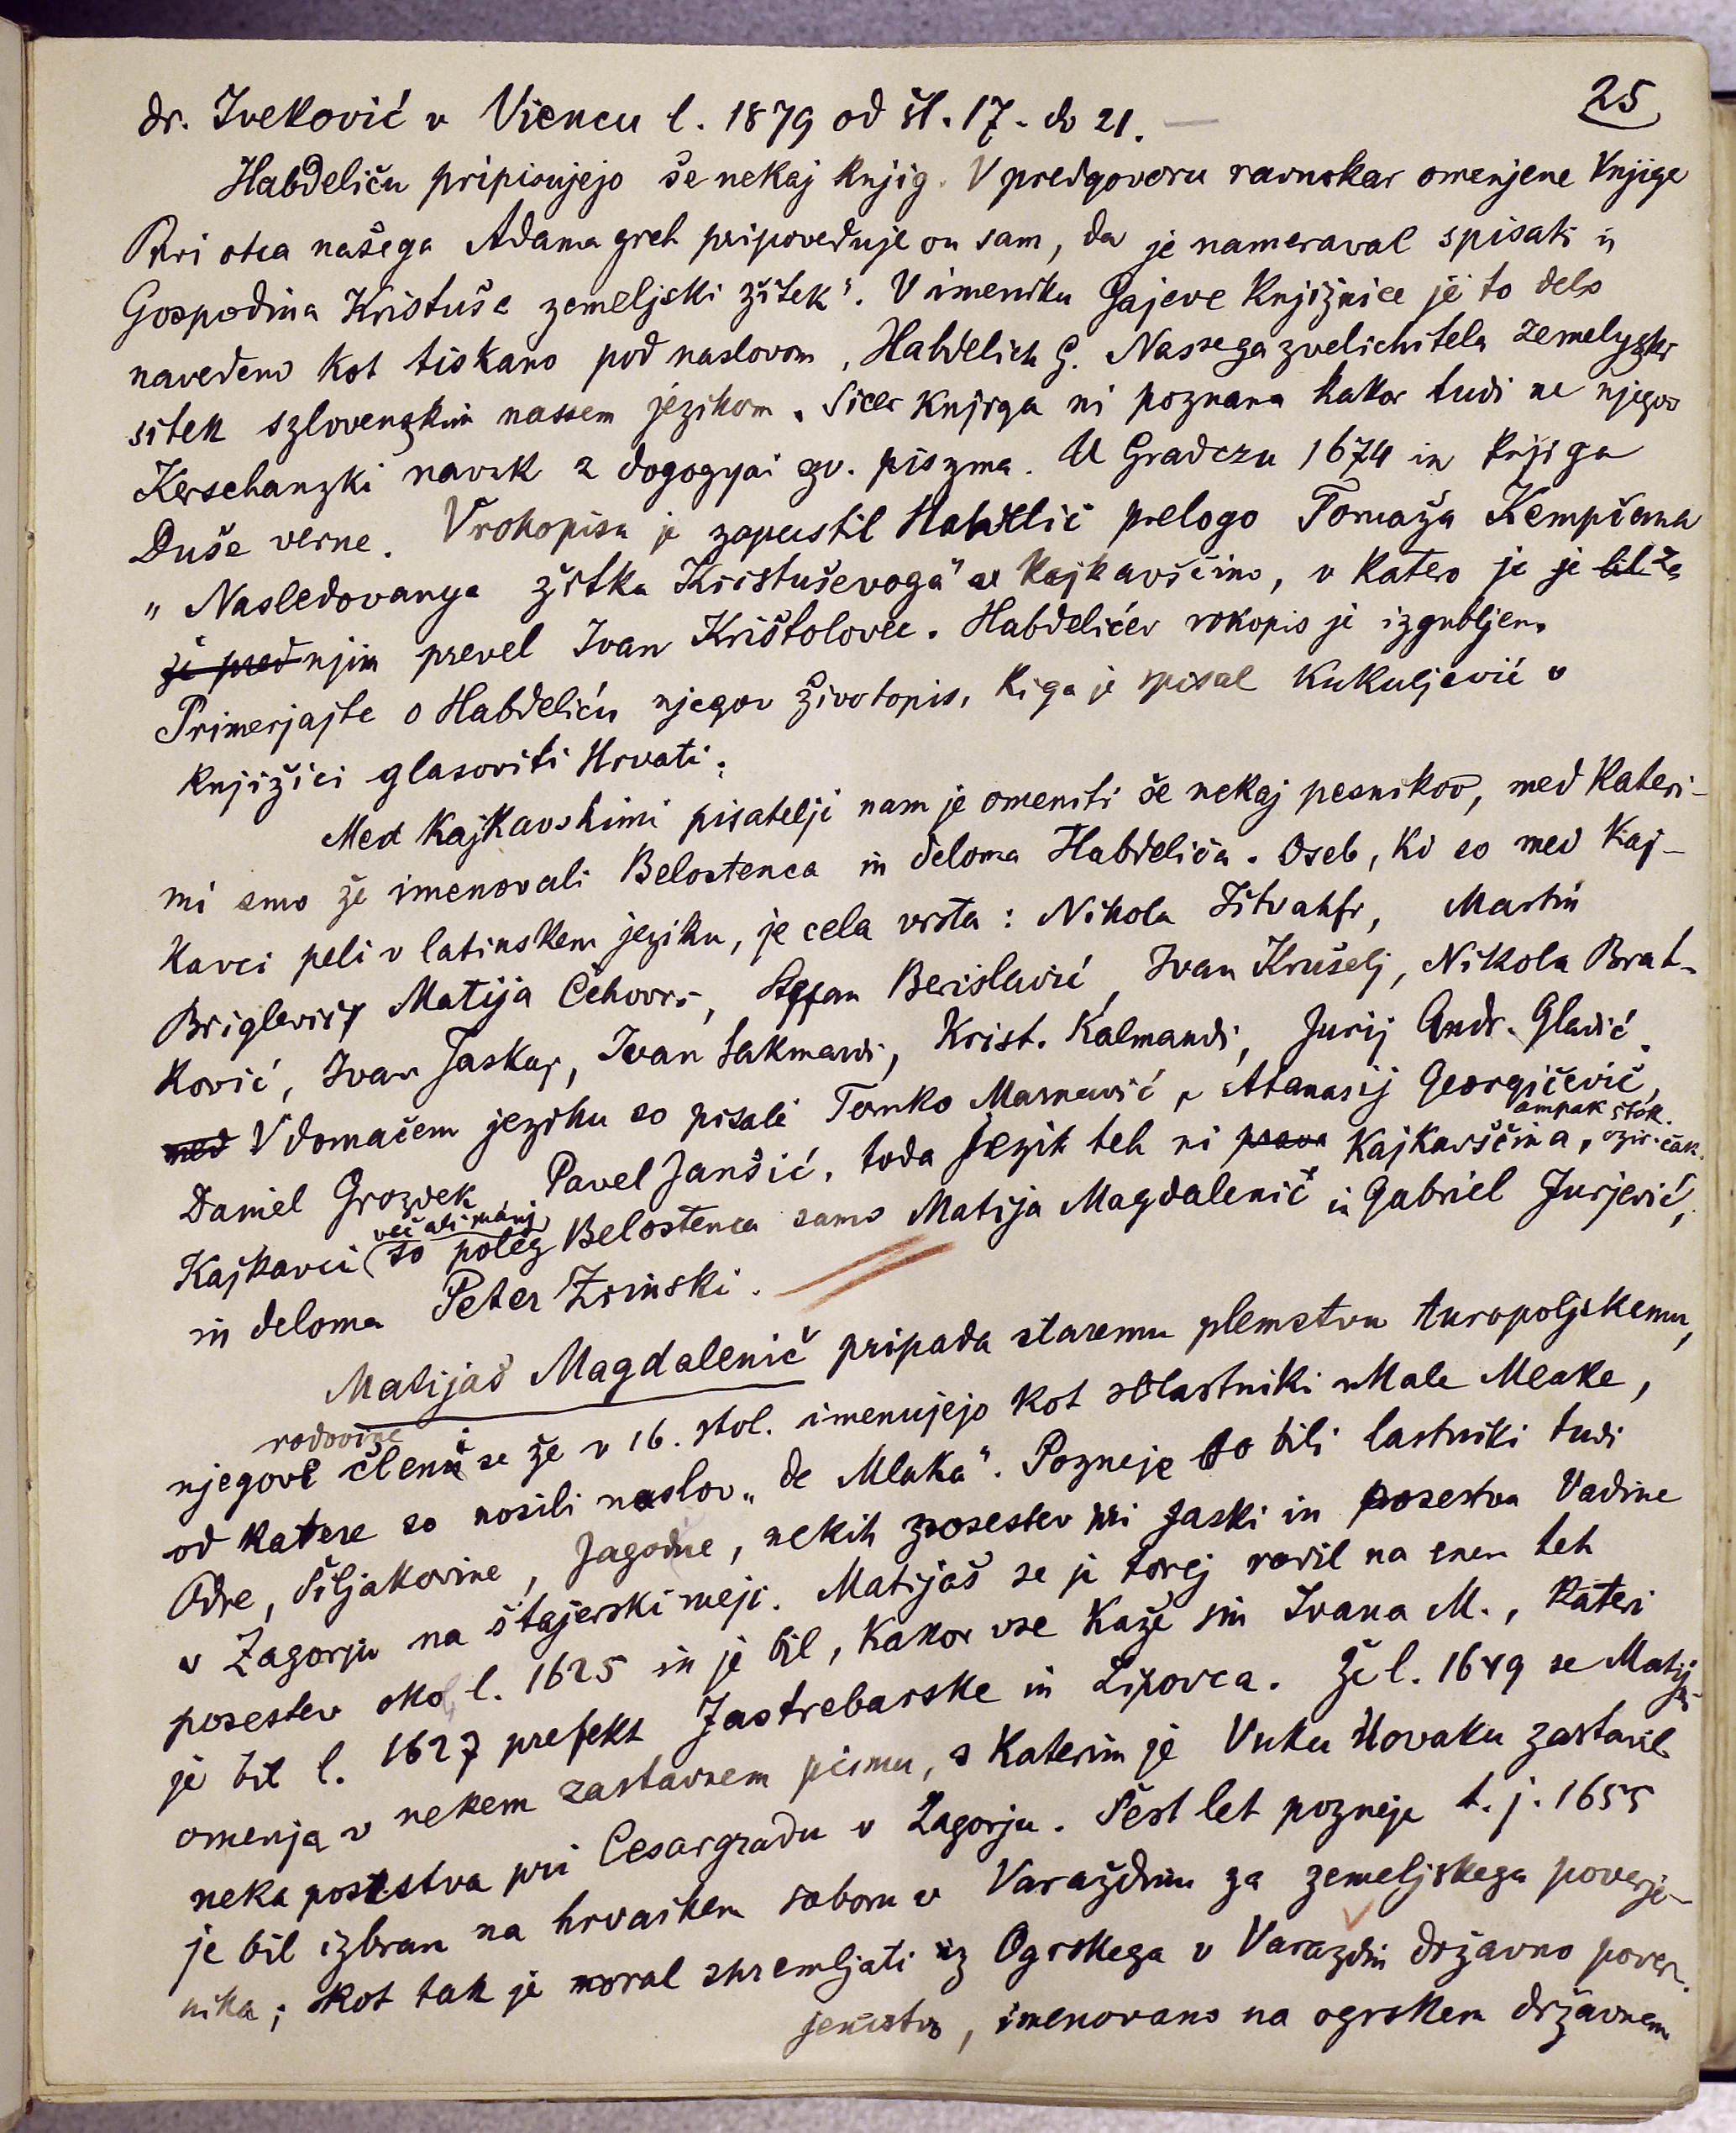 25
dr. Iveković v Viencu l. 1879 od št. 17. do 21. —
Habdeliću pripisujejo še nekaj knjig. V predgovoru ravnokar omenjene knjige
Prvi otca našega Adama greh pripoveduje on sam, da je nameraval spisati
Gospodina Kristuša zemeljski žitek". V imeniku Gajeve knjižnice je to delo
navedeno kot tiskano pod naslovom, Habdelich G. Nassega zvelichitela zemelyzki
sitek szlovenzkim nassem jezikom. Sicer knjiga ni poznana kakor tudi ne njegov
Kerschanzki navuk z dogogyai sv. piszma. U Gradczu 1674 in knjiga
Duše verne. V rokopisu je zapustil Habdelić prelogo Tomaža Kempčana
"Nasledovanye žitka Kristuševoga" v kajkavščino, v katero je je bil že
že pred njim prevel Ivan Krištolovec. Habdelićev rokopis je izgubljen.
Primerjajte o Habdeliću njegov životopis, ki ga je spisal Kukuljević v
knjižici glasoviti Hrvati.
Med kajkavskimi pisatelji nam je omeniti še nekaj pesnikov, med kateri-
mi smo že imenovali Belostenca in deloma Habdelića. Oseb, ki so med kaj-
kavci peli v latinskem jeziku, je cela vrsta: Nikola Istvánfi, Martin
Briglević, Matija Čehovec, Stefan Berislavić, Ivan Krušelj, Nikola Brat-
ković, Ivan Jaskaj, Ivan Sakmardi, Krist. Kalmandi, Jurij Andr. Gladić.
med V domačem jeziku so pisali Tomko Marnavić, Atanasij Georgičević,
Daniel Grozdek, Pavel Janšić, toda jezik teh ni prava kajkavščina, ampak štok. ozir. čak.
Kajkavci (več ali manj) so poleg Belostenca samo Matija Magdalenič in Gabriel Jurjević,
in deloma Peter Zrinski.
Matijaš Magdalenič pripada staremu plemstvu turopoljskemu,
njegove rodovine členi se že v 16. stol. imenujejo kot solastniki Male Mlake,
od katere so nosili naslov „de Mlaka". Pozneje so bili lastniki tudi
Odre, Šiljakovine, Jagodne, nekih posestev pri Jaski in posestva Vadine
v Zagorju na štajerski meji. Matijaš se je torej rodil na enem teh
posestev okol l. 1625 in je bil, kakor vse kaže sin Ivana M., kateri
je bil l. 1627 prefekt Jastrebarske in Lipovca. Že l. 1649 se Matijaš
omenja v nekem zastavnem pismu, s katerim je Vuku Novaku zastavil
neka posestva pri Cesargradu v Zagorju. Šest let pozneje t. j. 1655
je bil izbran na hrvaškem saboru v Varaždinu za zemeljskega poverje-
nika; kot tak je moral spremljati iz Ogrskega v Varaždin državno pover-
jeništvo, imenovano na ogrskem državnem